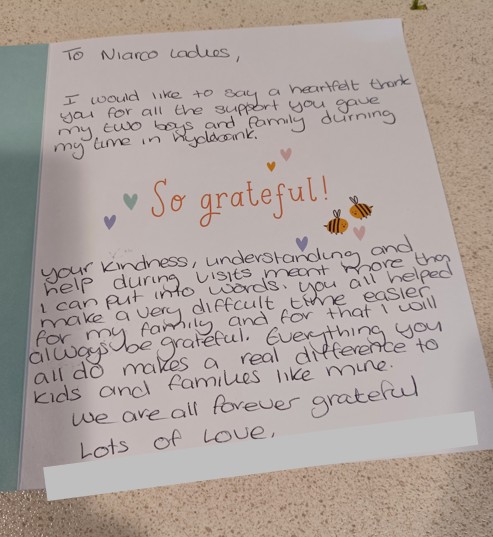 To Niarco Ladies,
I would like to say a heartfelt thank
you for all the support you gave
my two boys and family durning
my time in hydebank.
So grateful!
your kindness, understanding and
help during visits meant more than
I can put into words. you all helped
make a very diffcult time easier
for my family and for that I will
always be grateful. Everything you
all do makes a real difference to
kids and families like mine.
We are all forever grateful
Lots of Love,